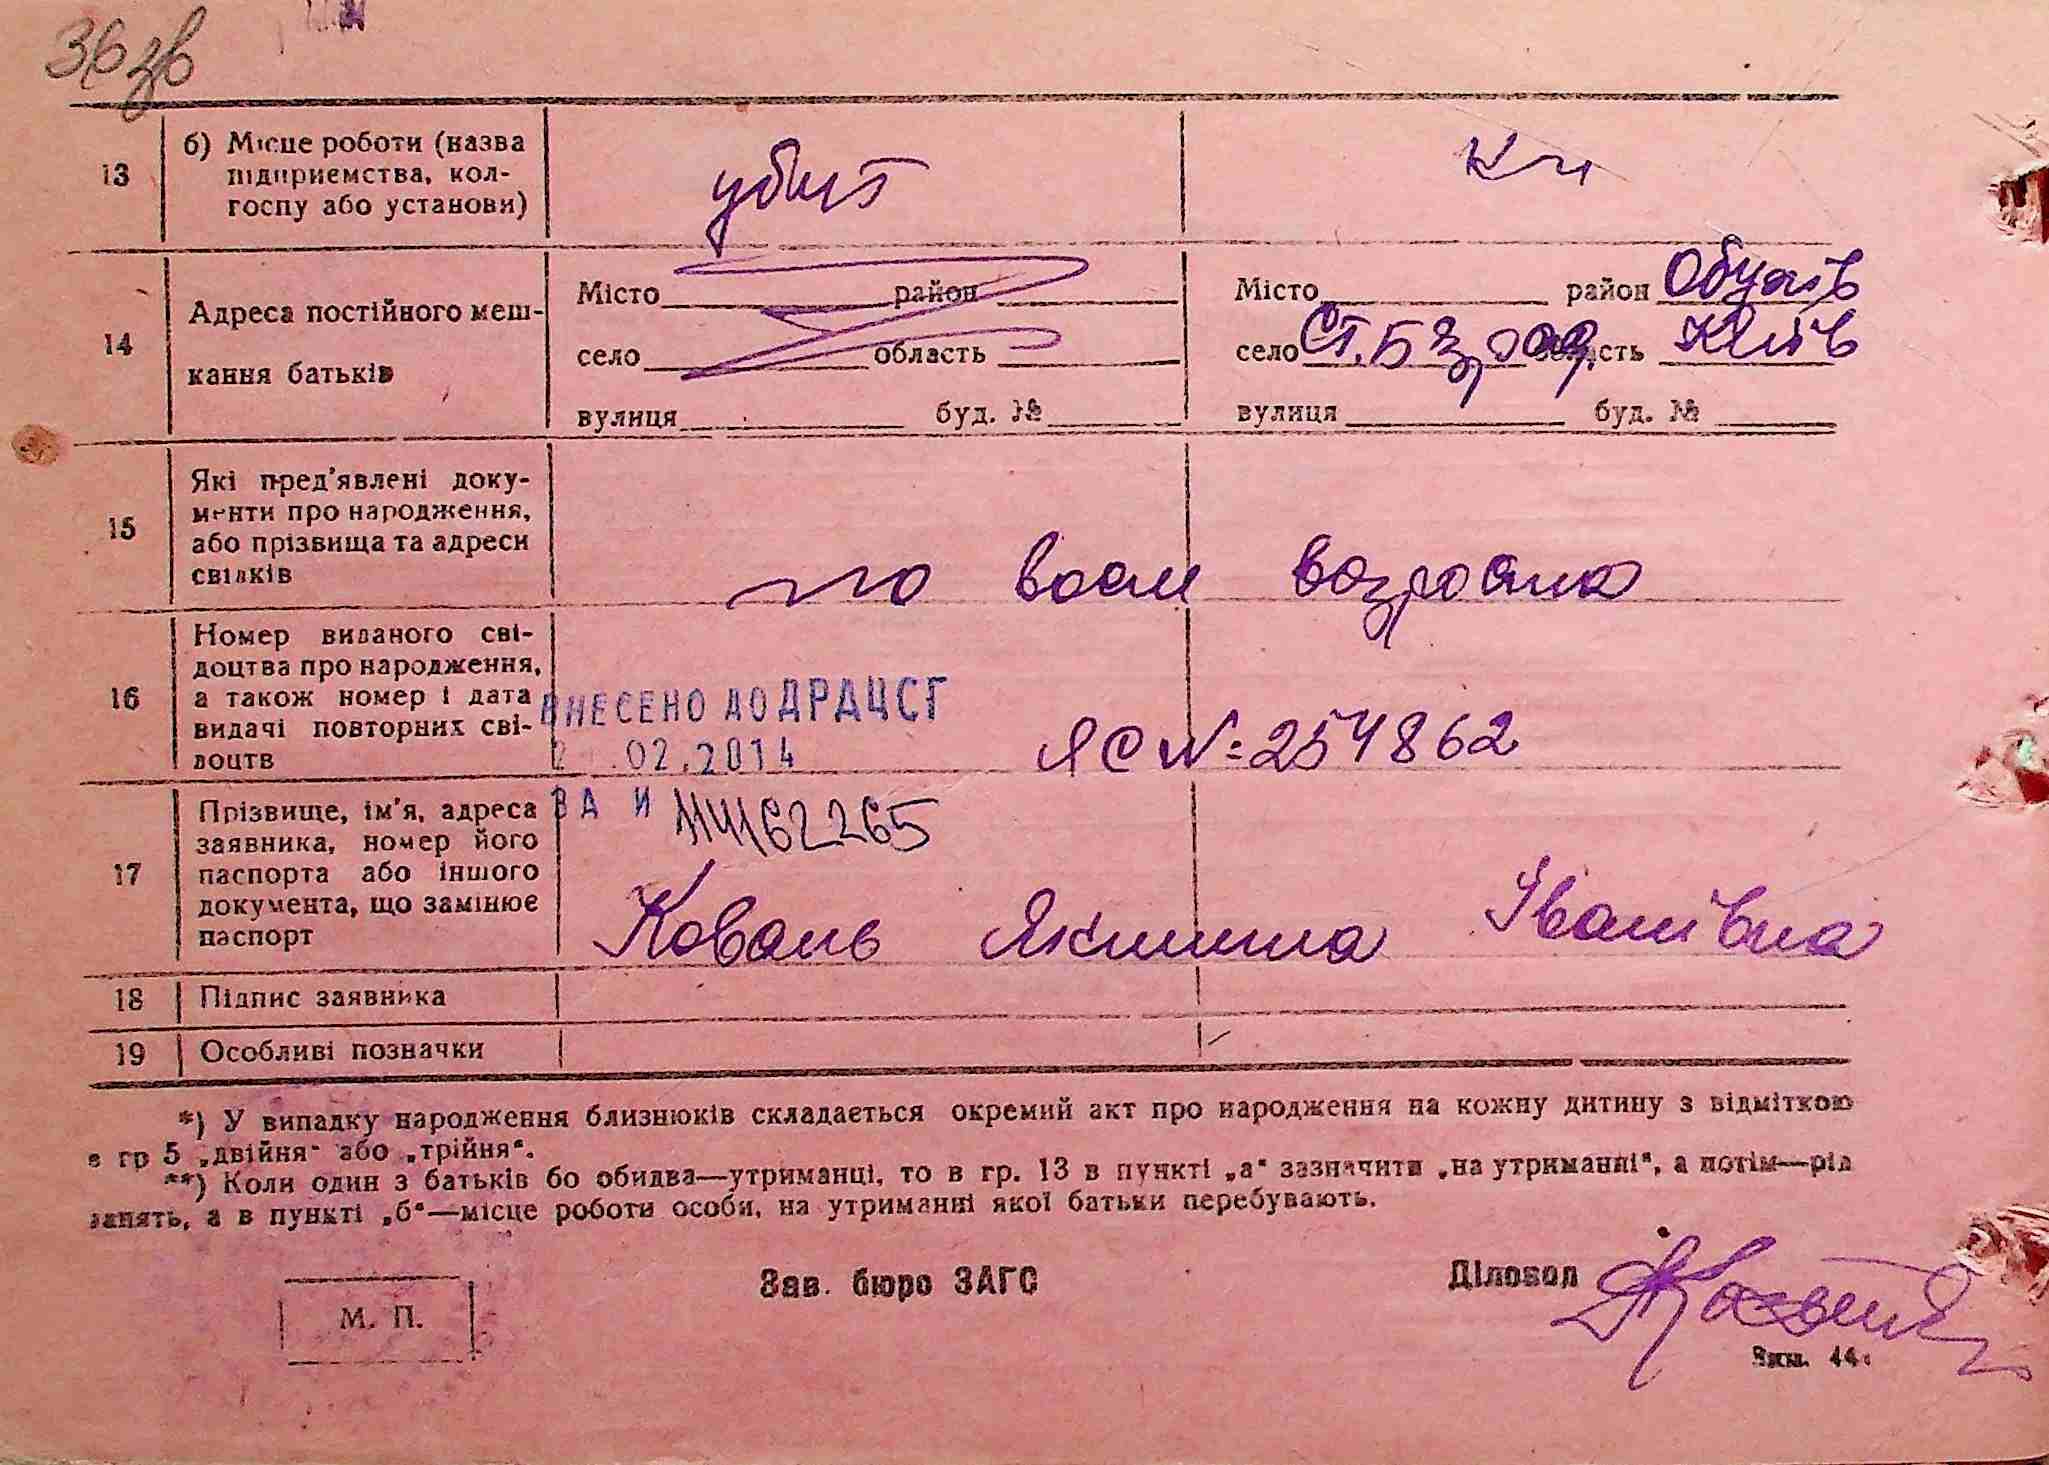 13 б) Місце роботи (назва підприємства, колгоспу або установи) убит
14 Адреса постійного мешкання батьків
Місто район
село область
вулиця буд. №
Місто район Обухів
село Ст. Безрад. область Київ
вулиця буд. №
15 Які пред'явлені документи про народження, або прізвища та адреси свідків
по восп возроста
16 Номер виданого свідоцтва про народження, а також номер і дата видачі повторних свідоцтв
ВНЕСЕНО ДО ДРАЦСГ
2 .02.2014
ЯС №=254862
17 Прізвище, ім'я, адреса заявника, номер його паспорта або іншого документа, що замінює паспорт
ЗА И
Коваль Якилина Іванівна
18 Підпис заявника
19 Особливі позначки
*) У випадку народження близнюків складається окремий акт про народження на кожну дитину з відміткою
в гр 5 „двійня" або „трійня".
**) Коли один з батьків бо обидва—утриманці, то в гр. 13 в пункті „а" зазначити „на утриманні", а потім—рід
занять, а в пункті „б"—місце роботи особи, на утриманні якої батьки перебувають.
М. П.
Зав. бюро ЗАГС
Діловод
Зам. 44